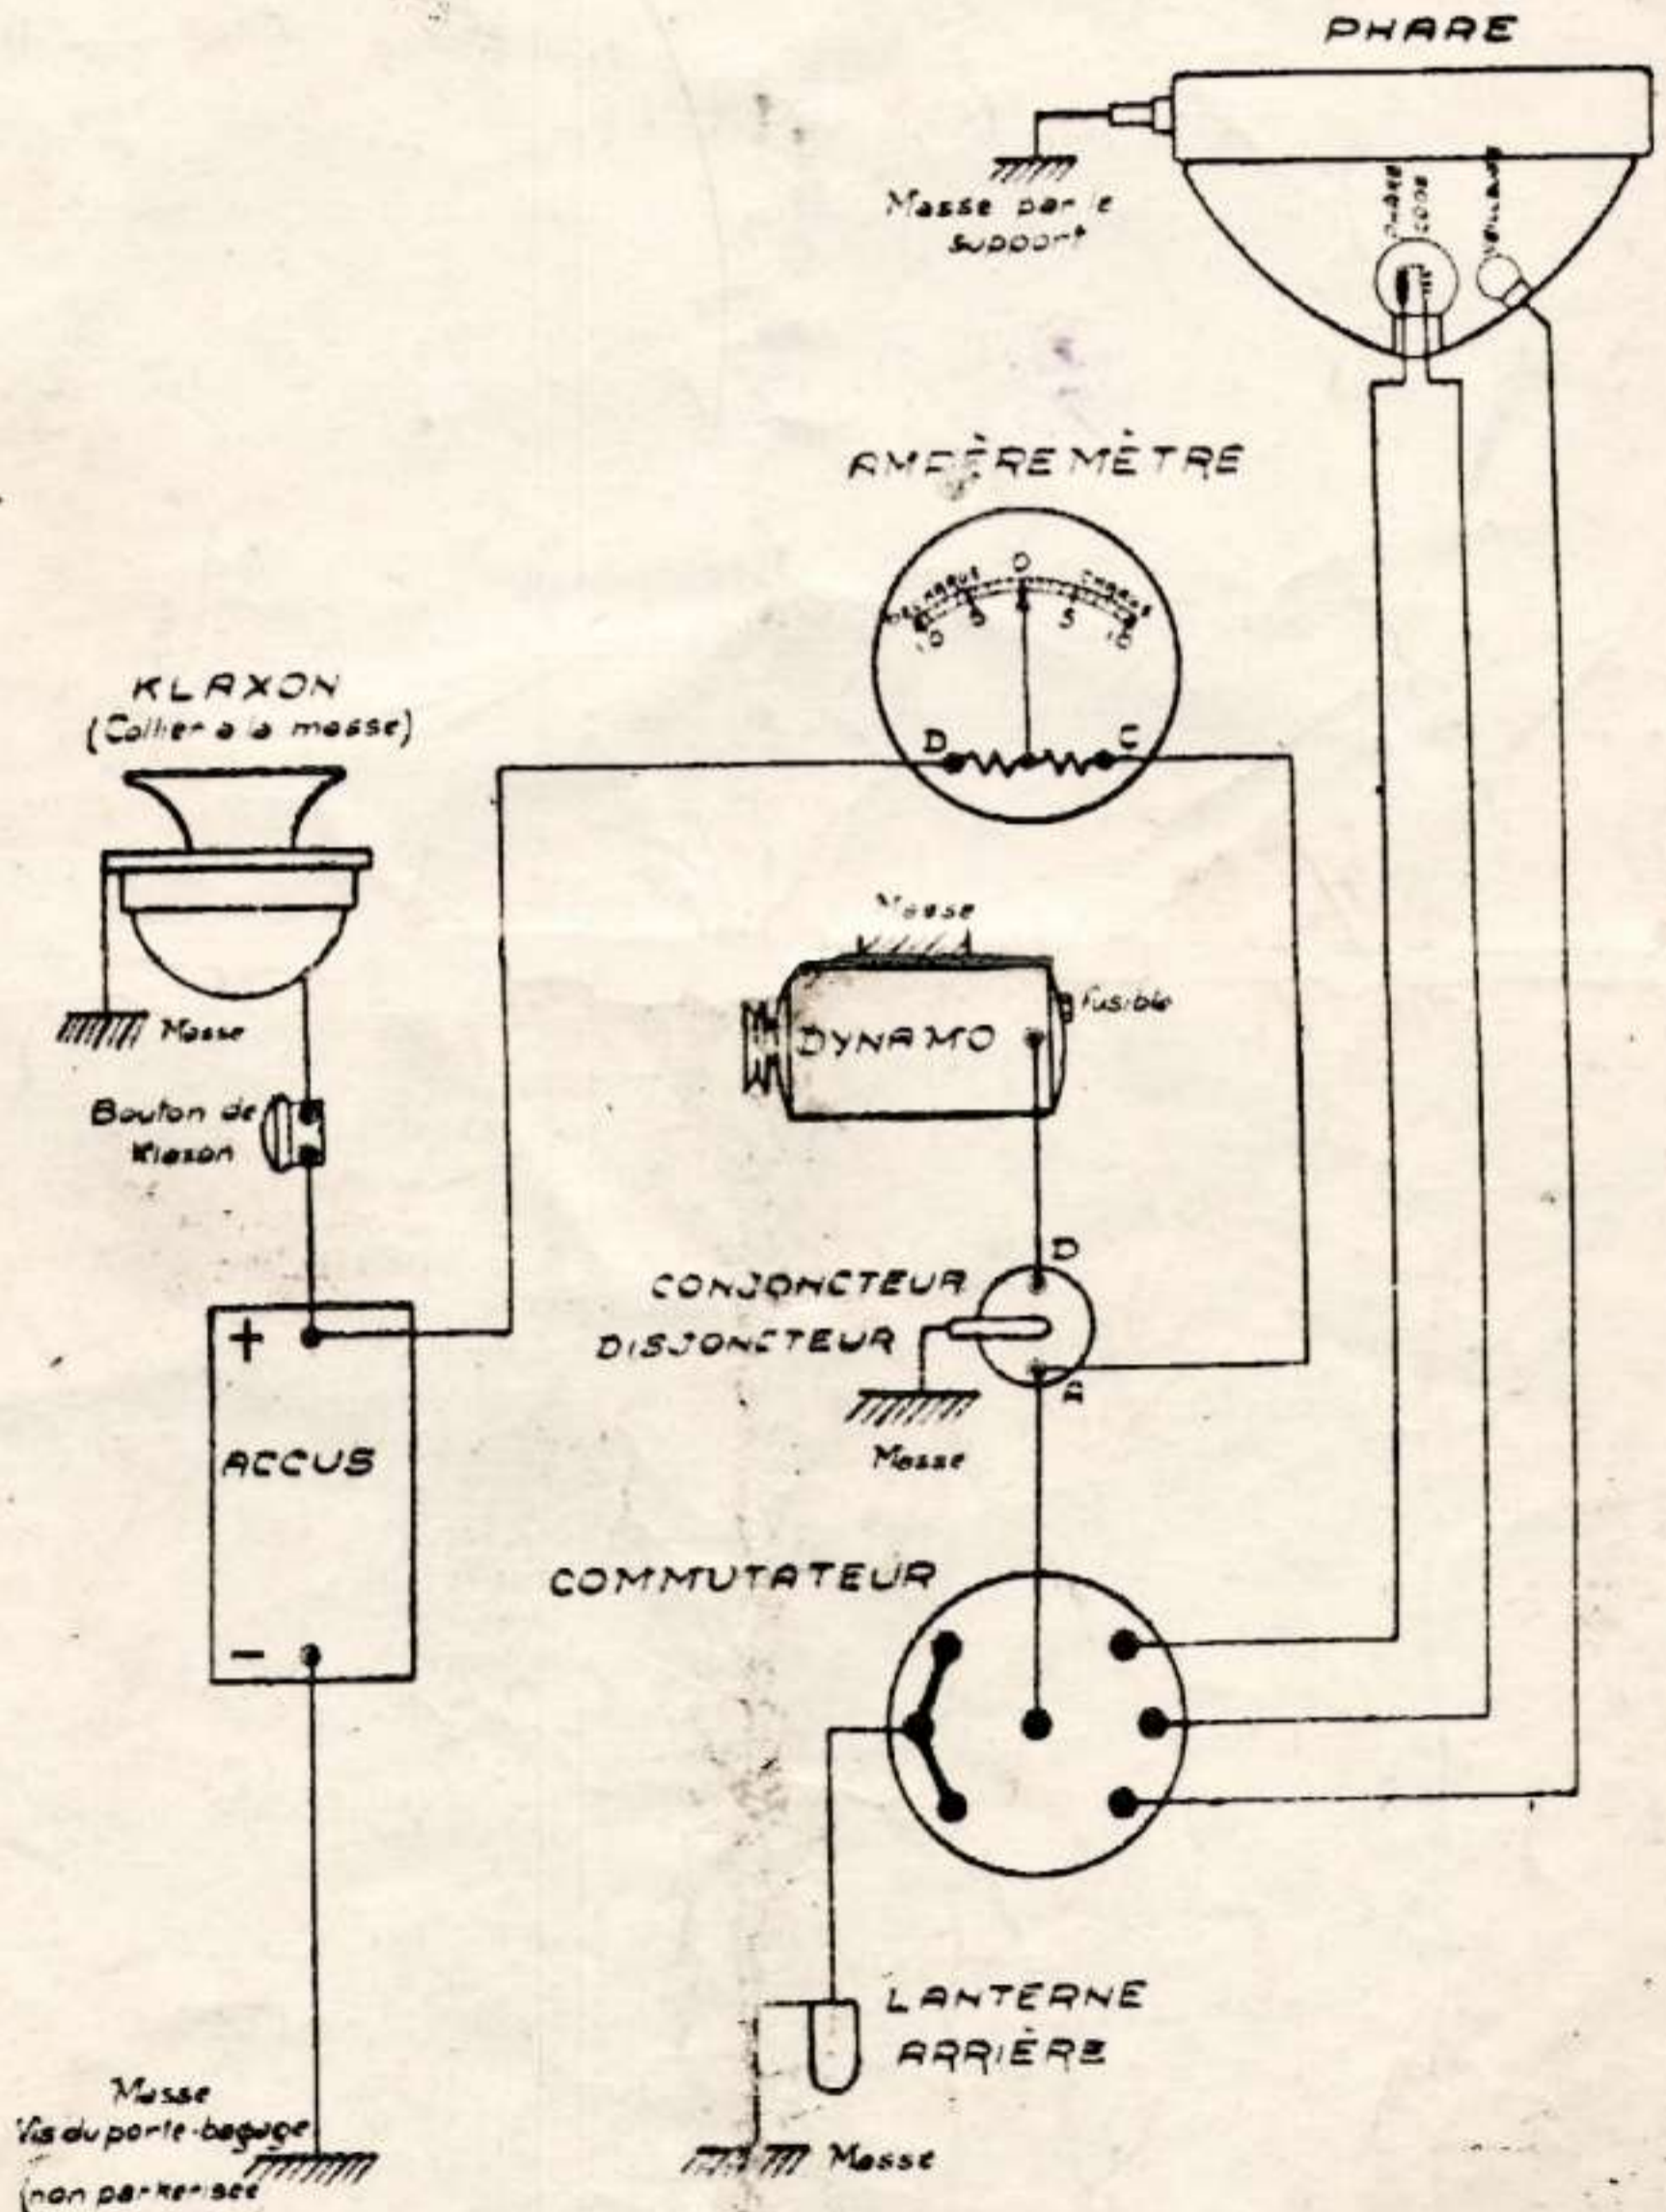 PHARE
Masse par le
support
PHARE
CODE
AMPÈREMÈTRE
DÉCHARGE 0 CHARGE
10 5 5 10
D C
KLAXON
(Collier a la masse)
Masse
Bouton de
Klaxon
Masse
Fusible
DYNAMO
D
CONJONCTEUR
DISJONCTEUR
Masse
+
ACCUS
-
COMMUTATEUR
LANTERNE
ARRIÈRE
Masse
Masse
Vis du porte-bagage
(non parkerisée